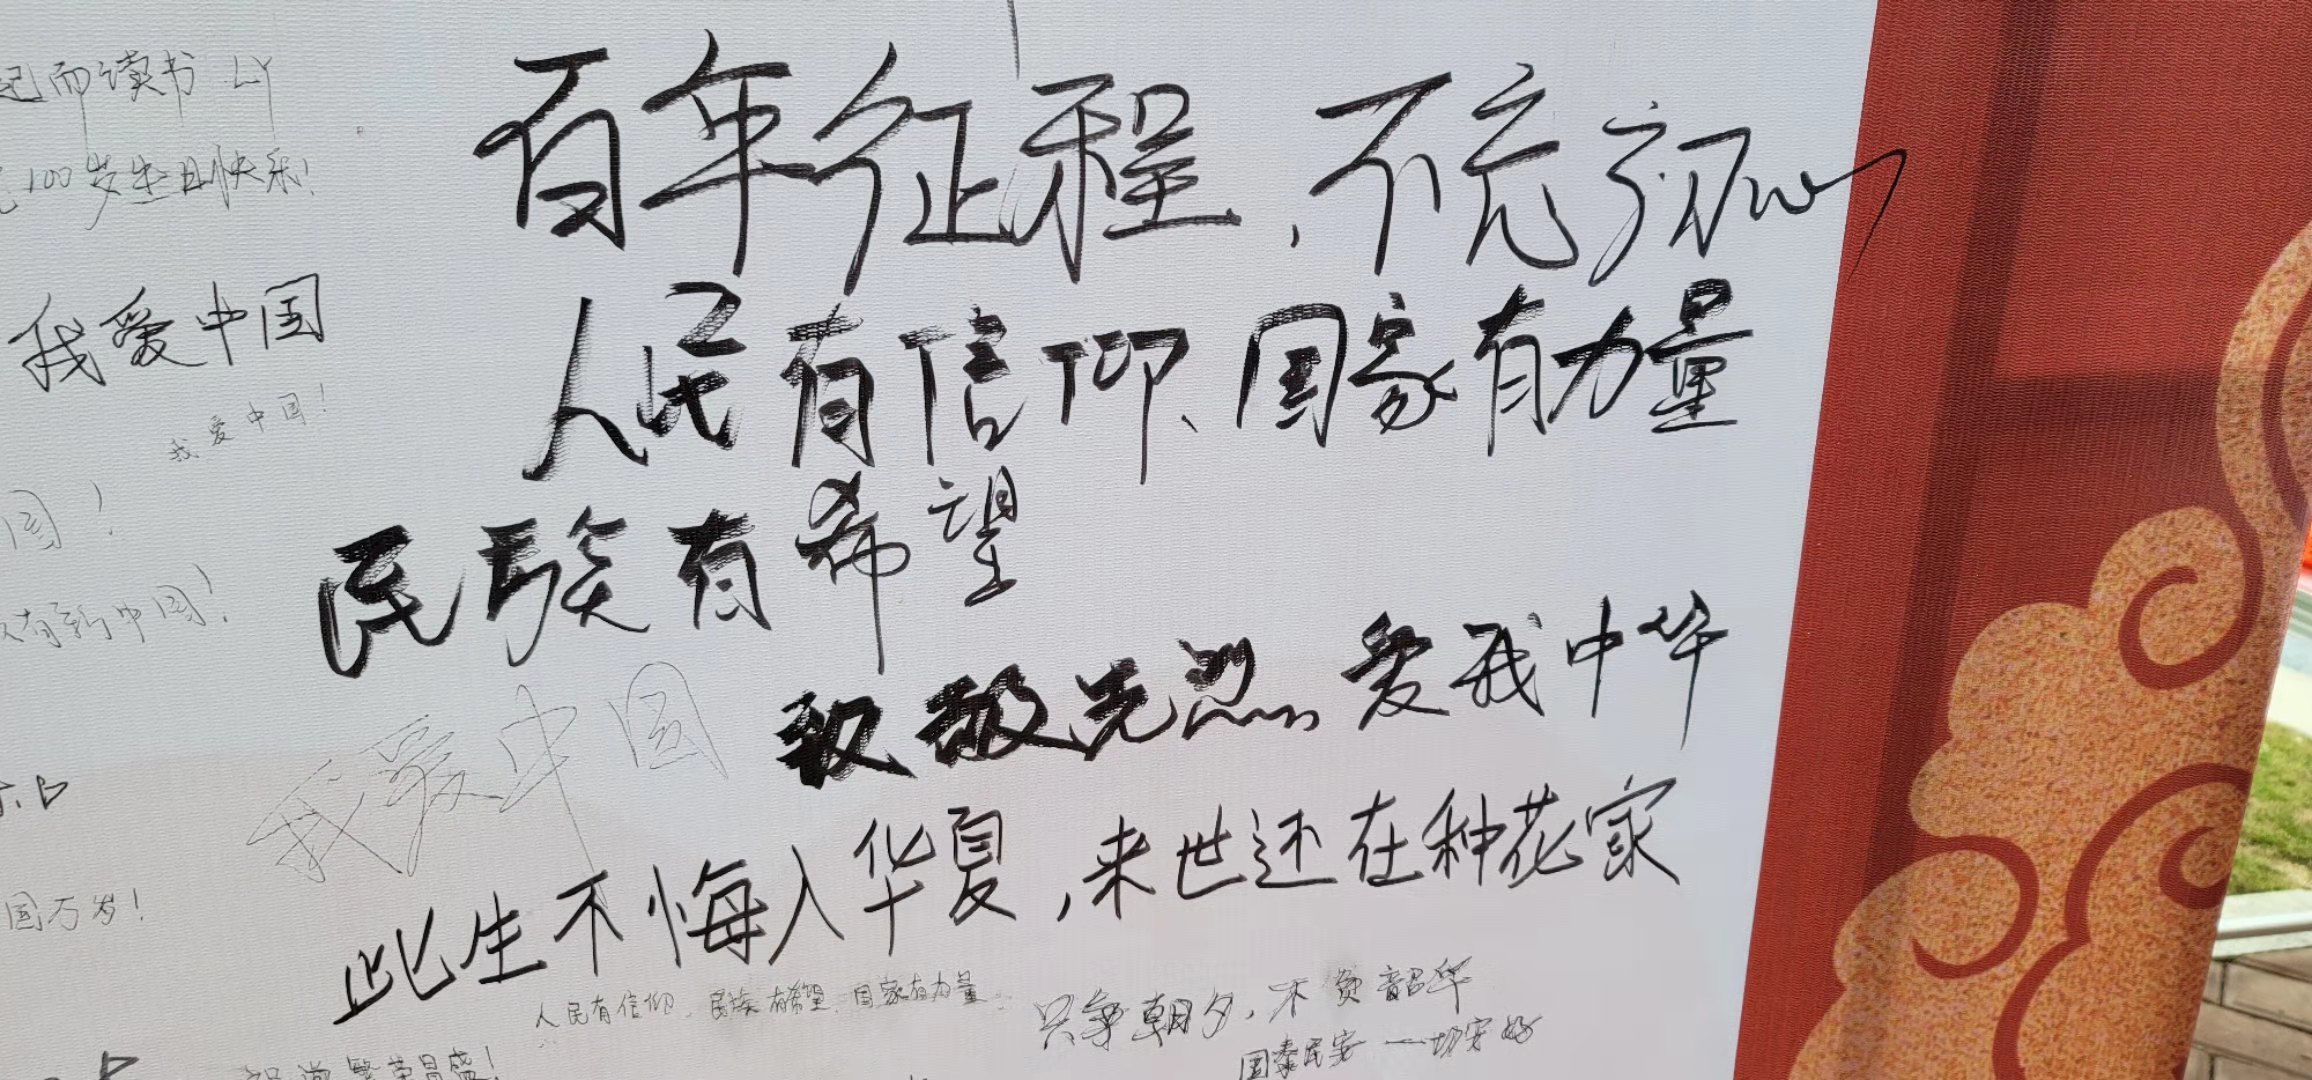 起而读书 LY
100岁生日快乐！
百年征程，不忘初心
我爱中国
人民有信仰、国家有力量
我爱中国！
国！
民族有希望
有新中国！
致敬先烈 爱我中华
我爱中国
此生不悔入华夏，来世还在种花家
国万岁！
人民有信仰、民族有希望、国家有力量。
只争朝夕，不负韶华
国泰民安 一切安好
繁荣昌盛！